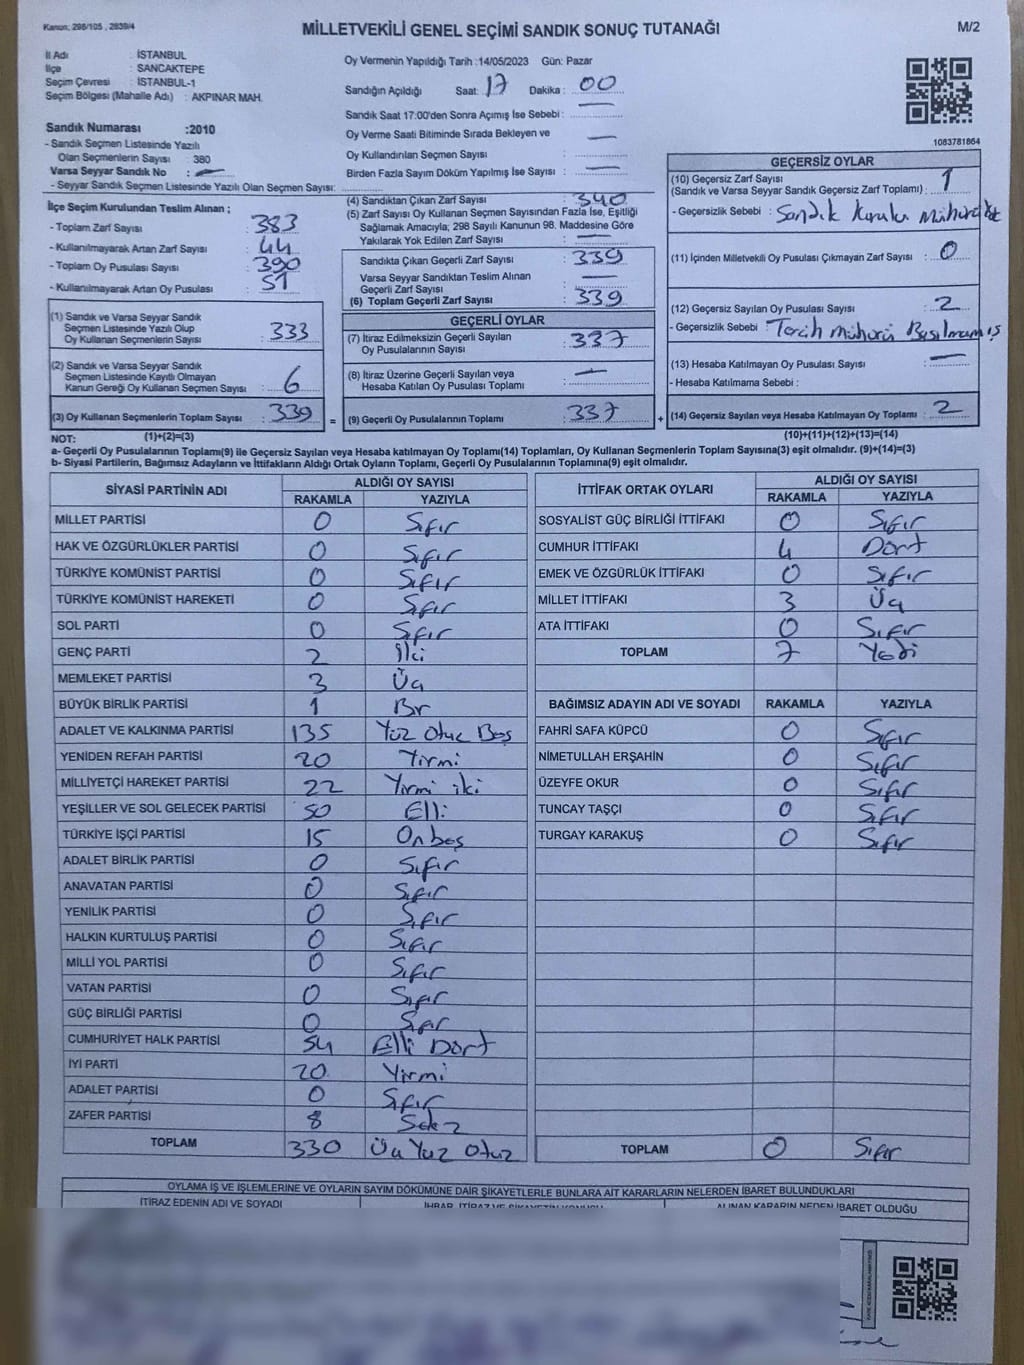 Kanun: 298/105 , 2839/4
MİLLETVEKİLİ GENEL SEÇİMİ SANDIK SONUÇ TUTANAĞI
M/2
İl Adı : İSTANBUL
İlçe : SANCAKTEPE
Seçim Çevresi : İSTANBUL-1
Seçim Bölgesi (Mahalle Adı) : AKPINAR MAH.
Sandık Numarası :2010
- Sandık Seçmen Listesinde Yazılı
Olan Seçmenlerin Sayısı : 380
Varsa Seyyar Sandık No : —
- Seyyar Sandık Seçmen Listesinde Yazılı Olan Seçmen Sayısı:
Oy Vermenin Yapıldığı Tarih :14/05/2023 Gün: Pazar
Sandığın Açıldığı Saat: 17 Dakika : 00
Sandık Saat 17:00'den Sonra Açımış İse Sebebi : —
Oy Verme Saati Bitiminde Sırada Bekleyen ve
Oy Kullandırılan Seçmen Sayısı : —
Birden Fazla Sayım Döküm Yapılmış İse Sayısı : —
1083781864
İlçe Seçim Kurulundan Teslim Alınan ;
- Toplam Zarf Sayısı : 383
- Kullanılmayarak Artan Zarf Sayısı : 44
- Toplam Oy Pusulası Sayısı : 390
- Kullanılmayarak Artan Oy Pusulası : 51
(1) Sandık ve Varsa Seyyar Sandık
Seçmen Listesinde Yazılı Olup
Oy Kullanan Seçmenlerin Sayısı : 333
(2) Sandık ve Varsa Seyyar Sandık
Seçmen Listesinde Kayıtlı Olmayan
Kanun Gereği Oy Kullanan Seçmen Sayısı : 6
(3) Oy Kullanan Seçmenlerin Toplam Sayısı : 339
(4) Sandıktan Çıkan Zarf Sayısı : 340
(5) Zarf Sayısı Oy Kullanan Seçmen Sayısından Fazla İse, Eşitliği
Sağlamak Amacıyla; 298 Sayılı Kanunun 98. Maddesine Göre
Yakılarak Yok Edilen Zarf Sayısı : —
Sandıkta Çıkan Geçerli Zarf Sayısı : 339
Varsa Seyyar Sandıktan Teslim Alınan
Geçerli Zarf Sayısı : —
(6) Toplam Geçerli Zarf Sayısı : 339
GEÇERLİ OYLAR
(7) İtiraz Edilmeksizin Geçerli Sayılan
Oy Pusulalarının Sayısı : 337
(8) İtiraz Üzerine Geçerli Sayılan veya
Hesaba Katılan Oy Pusulası Toplamı : —
= (9) Geçerli Oy Pusulalarının Toplamı : 337 +
GEÇERSİZ OYLAR
(10) Geçersiz Zarf Sayısı
(Sandık ve Varsa Seyyar Sandık Geçersiz Zarf Toplamı) : 1
- Geçersizlik Sebebi : Sandık Kurulu Mührü Yok
(11) İçinden Milletvekili Oy Pusulası Çıkmayan Zarf Sayısı : 0
(12) Geçersiz Sayılan Oy Pusulası Sayısı : 2
- Geçersizlik Sebebi : Tercih Mührü Basılmamış
(13) Hesaba Katılmayan Oy Pusulası Sayısı : —
- Hesaba Katılmama Sebebi :
(14) Geçersiz Sayılan veya Hesaba Katılmayan Oy Toplamı : 2
NOT: (1)+(2)=(3) (10)+(11)+(12)+(13)=(14)
a- Geçerli Oy Pusulalarının Toplamı(9) ile Geçersiz Sayılan veya Hesaba katılmayan Oy Toplamı(14) Toplamları, Oy Kullanan Seçmenlerin Toplam Sayısına(3) eşit olmalıdır. (9)+(14)=(3)
b- Siyasi Partilerin, Bağımsız Adayların ve İttifakların Aldığı Ortak Oyların Toplamı, Geçerli Oy Pusulalarının Toplamına(9) eşit olmalıdır.
SİYASİ PARTİNİN ADI ALDIĞI OY SAYISI
RAKAMLA YAZIYLA
MİLLET PARTİSİ 0 Sıfır
HAK VE ÖZGÜRLÜKLER PARTİSİ 0 Sıfır
TÜRKİYE KOMÜNİST PARTİSİ 0 Sıfır
TÜRKİYE KOMÜNİST HAREKETİ 0 Sıfır
SOL PARTİ 0 Sıfır
GENÇ PARTİ 2 İki
MEMLEKET PARTİSİ 3 Üç
BÜYÜK BİRLİK PARTİSİ 1 Bir
ADALET VE KALKINMA PARTİSİ 135 Yüz Otuz Beş
YENİDEN REFAH PARTİSİ 20 Yirmi
MİLLİYETÇİ HAREKET PARTİSİ 22 Yirmi iki
YEŞİLLER VE SOL GELECEK PARTİSİ 50 Elli
TÜRKİYE İŞÇİ PARTİSİ 15 Onbeş
ADALET BİRLİK PARTİSİ 0 Sıfır
ANAVATAN PARTİSİ 0 Sıfır
YENİLİK PARTİSİ 0 Sıfır
HALKIN KURTULUŞ PARTİSİ 0 Sıfır
MİLLİ YOL PARTİSİ 0 Sıfır
VATAN PARTİSİ 0 Sıfır
GÜÇ BİRLİĞİ PARTİSİ 0 Sıfır
CUMHURİYET HALK PARTİSİ 54 Elli Dört
İYİ PARTİ 20 Yirmi
ADALET PARTİSİ 0 Sıfır
ZAFER PARTİSİ 8 Sekiz
TOPLAM 330 Üç Yüz Otuz
İTTİFAK ORTAK OYLARI ALDIĞI OY SAYISI
RAKAMLA YAZIYLA
SOSYALİST GÜÇ BİRLİĞİ İTTİFAKI 0 Sıfır
CUMHUR İTTİFAKI 4 Dört
EMEK VE ÖZGÜRLÜK İTTİFAKI 0 Sıfır
MİLLET İTTİFAKI 3 Üç
ATA İTTİFAKI 0 Sıfır
TOPLAM 7 Yedi
BAĞIMSIZ ADAYIN ADI VE SOYADI RAKAMLA YAZIYLA
FAHRİ SAFA KÜPCÜ 0 Sıfır
NİMETULLAH ERŞAHİN 0 Sıfır
ÜZEYFE OKUR 0 Sıfır
TUNCAY TAŞÇI 0 Sıfır
TURGAY KARAKUŞ 0 Sıfır
TOPLAM 0 Sıfır
OYLAMA İŞ VE İŞLEMLERİNE VE OYLARIN SAYIM DÖKÜMÜNE DAİR ŞİKAYETLERLE BUNLARA AİT KARARLARIN NELERDEN İBARET BULUNDUKLARI
İTİRAZ EDENİN ADI VE SOYADI İHBAR, İTİRAZ VE ŞİKAYETİN KONUSU ALINAN KARARIN NEDEN İBARET OLDUĞU